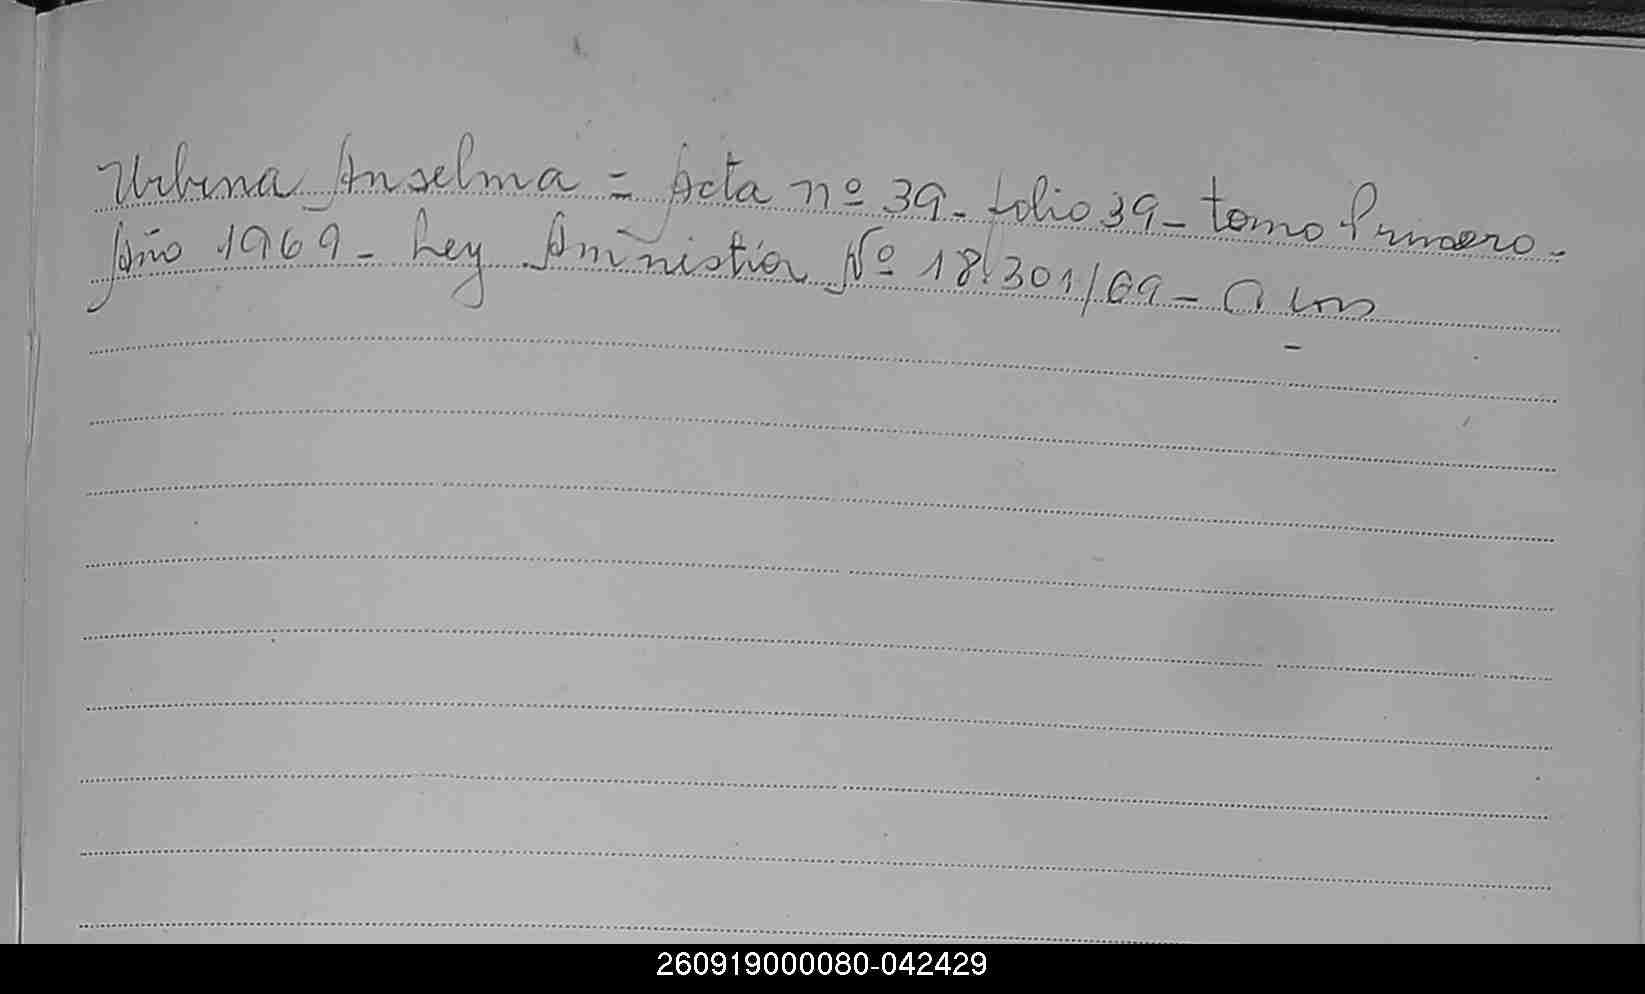 Urbina Anselma = Acta nº 39 - folio 39 - tomo Primero -
Año 1969 - Ley Aministia Nº 18.301/69 -
260919000080-042429